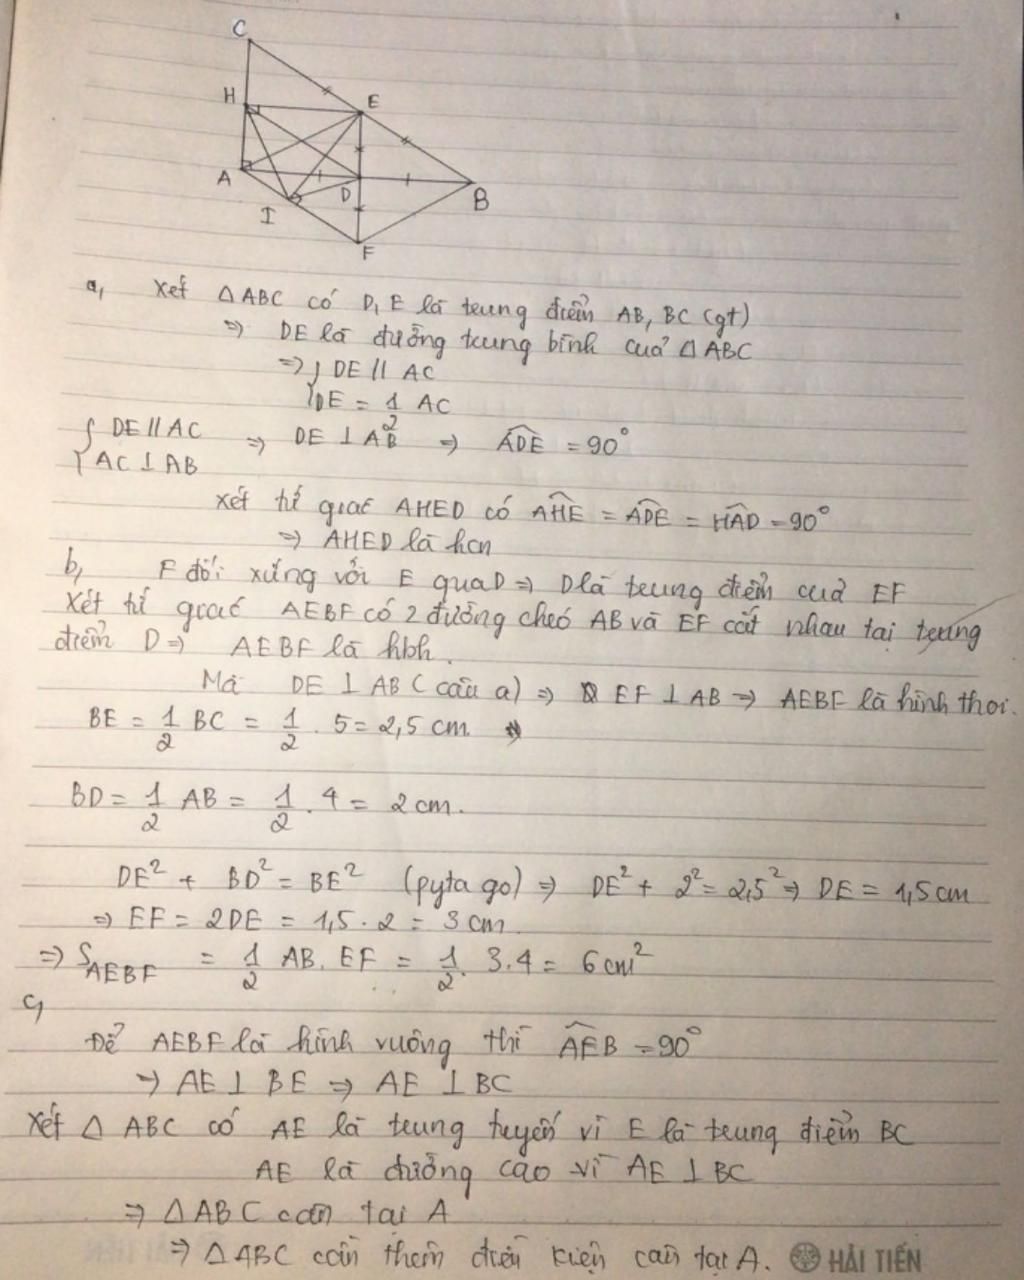 C
H
E
A
D
B
I
F
a, Xét △ABC có D, E là trung điểm AB, BC (gt)
=> DE là đường trung bình của △ABC
=> { DE // AC
DE = 1/2 AC
{ DE // AC => DE ⊥ AB => ADE = 90°
AC ⊥ AB
Xét tứ giác AHED có AHE = ADE = HAD = 90°
=> AHED là hcn
b, F đối xứng với E qua D => D là trung điểm của EF
Xét tứ giác AEBF có 2 đường chéo AB và EF cắt nhau tại trung
điểm D => AEBF là hbh.
Mà DE ⊥ AB (câu a) => EF ⊥ AB => AEBF là hình thoi.
BE = 1/2 BC = 1/2 . 5 = 2,5 cm
BD = 1/2 AB = 1/2 . 4 = 2 cm.
DE² + BD² = BE² (pyta go) => DE² + 2² = 2,5² => DE = 1,5 cm
=> EF = 2DE = 1,5 . 2 = 3 cm
=> S AEBF = 1/2 AB. EF = 1/2 . 3.4 = 6 cm²
c,
Để AEBF là hình vuông thì AEB = 90°
=> AE ⊥ BE => AE ⊥ BC
Xét △ ABC có AE là trung tuyến vì E là trung điểm BC
AE là đường cao vì AE ⊥ BC
=> △ABC cân tại A
=> △ABC cần thêm điều kiện cân tại A. HẢI TIẾN